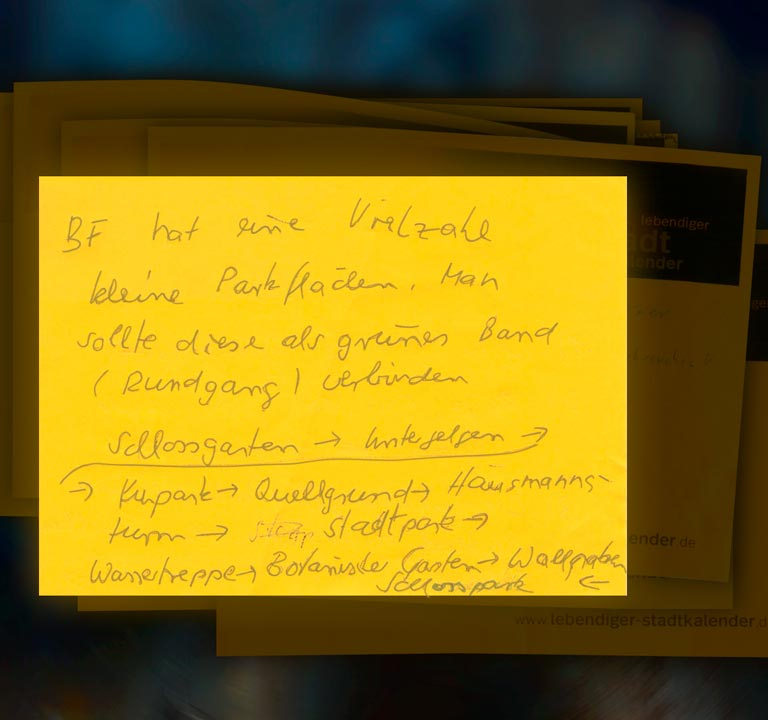 BF hat eine Vielzahl
kleine Parkflächen. Man
sollte diese als grünes Band
(Rundgang) verbinden
Schlossgarten → Unterfelsen →
→ Kurpark → Quellgrund → Hausmanns-
turm → Stadtpark →
Wassertreppe → Botanischer Garten → Wallgraben
Schlosspark ←
lebendiger
adt
lender
ender.de
www.lebendiger-stadtkalender.d